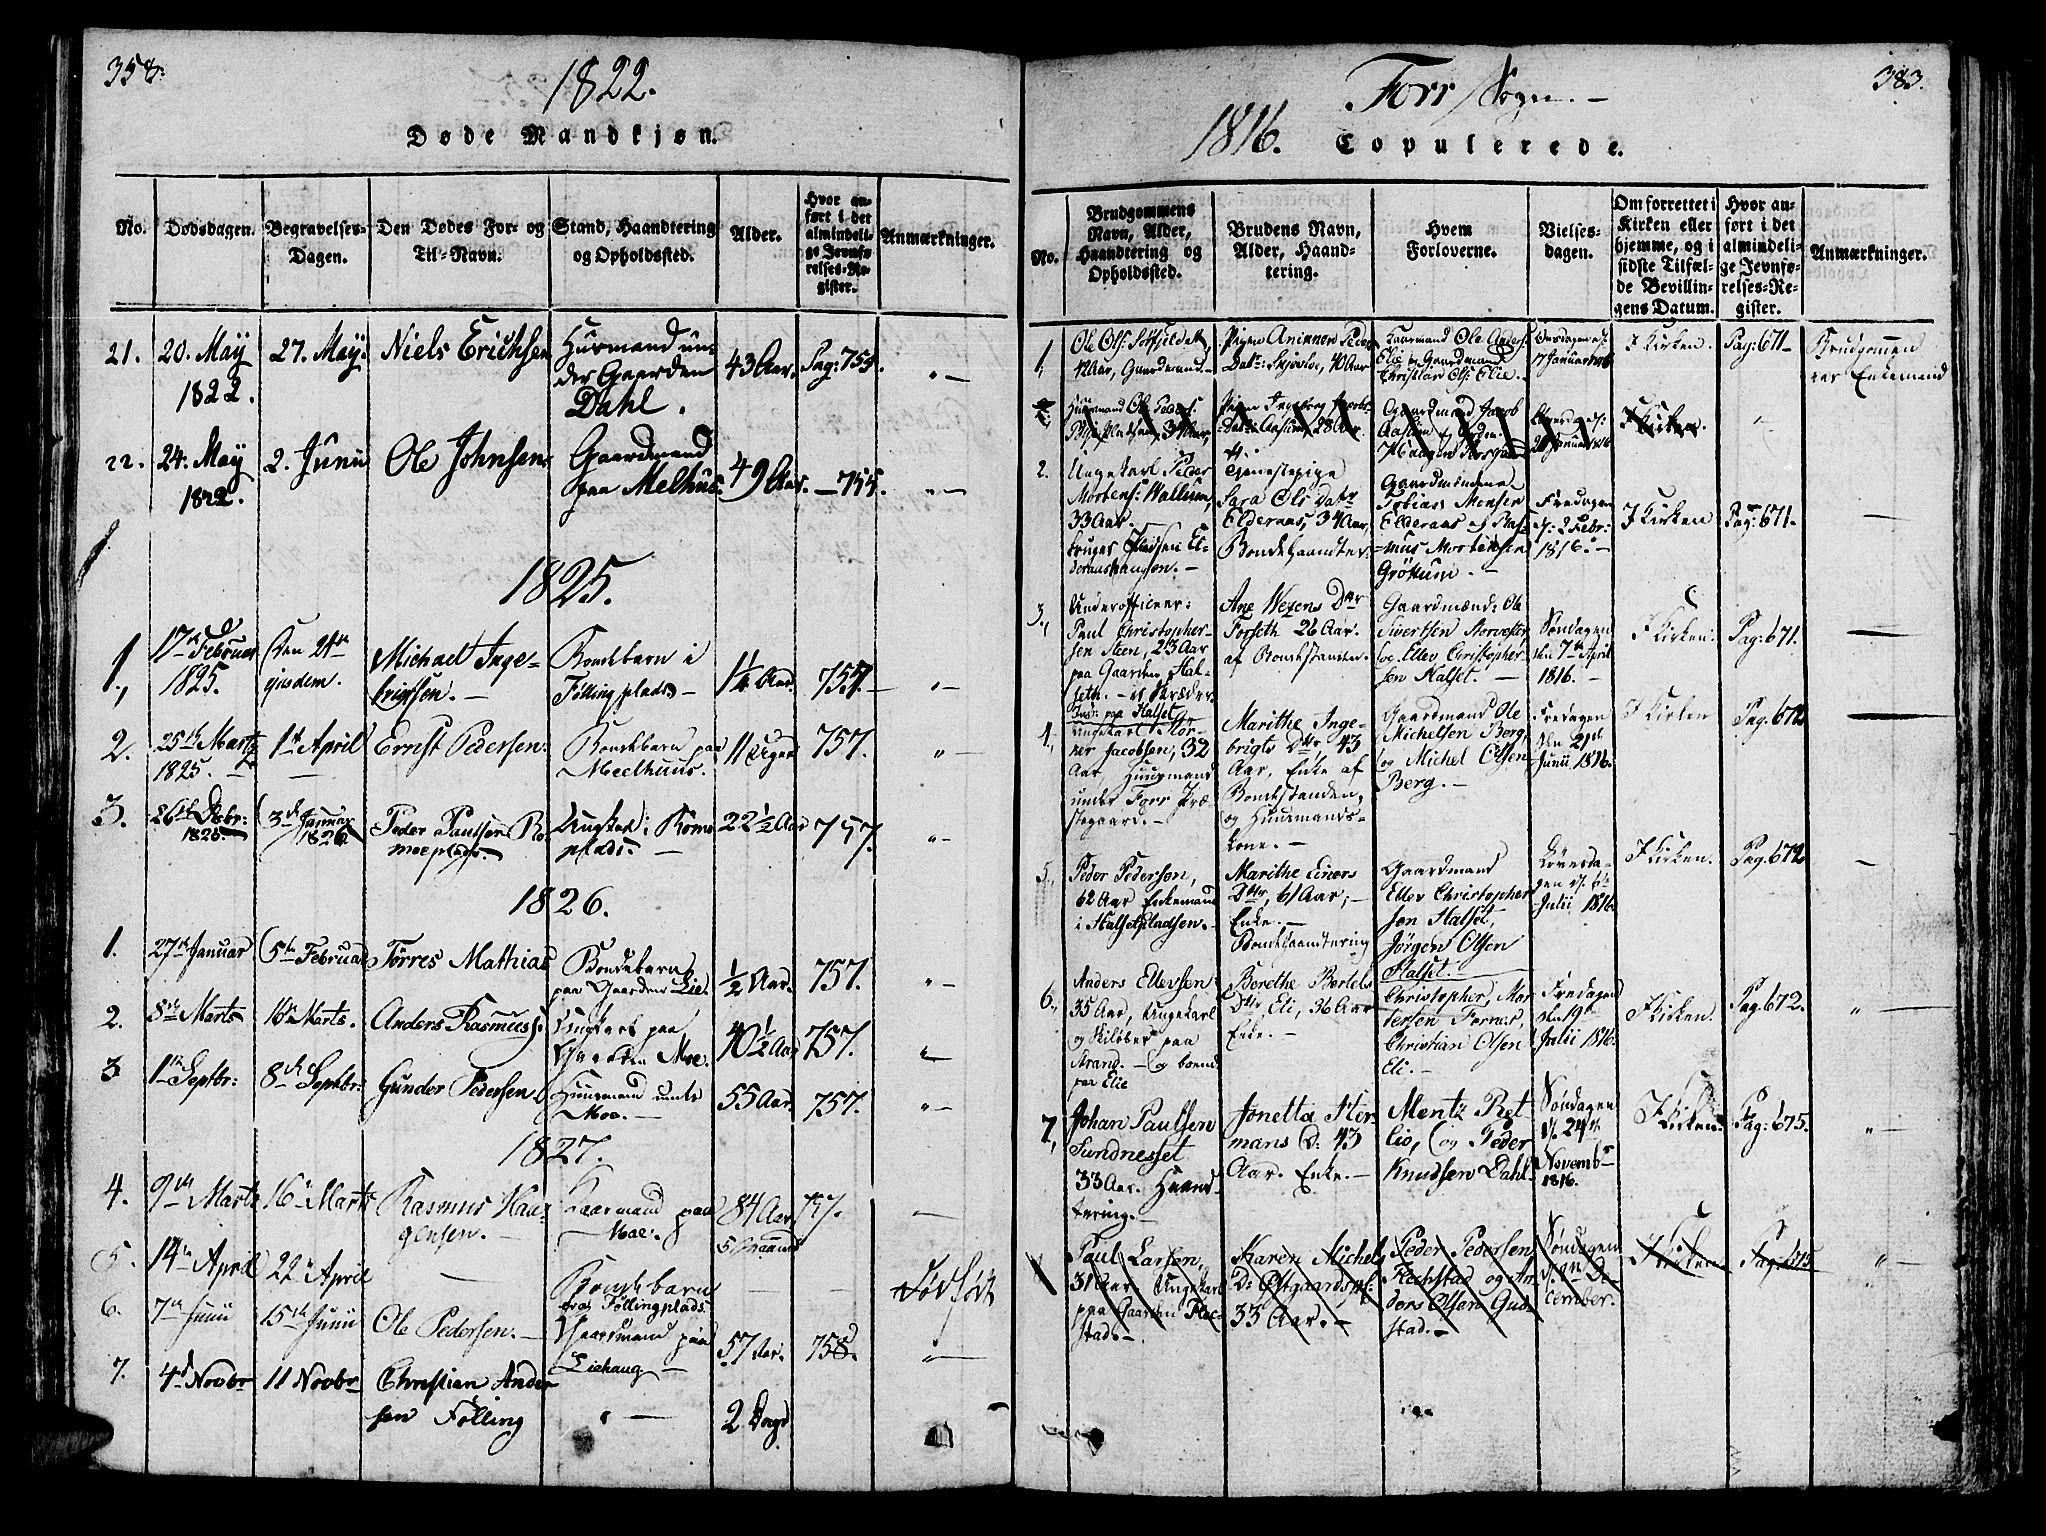 358.
1822.
Døde Mandkjøn.
No.
Dødsdagen.
Begravelses-
Dagen.
Den Dødes For- og
Til-Navn.
Stand, Haandtering
og Opholdssted.
Alder.
Hvor an-
ført i det
almindeli-
ge Jevnfø-
relses-Re-
gister.
Anmærkninger.
21. 20. May 1822. 27. May. Niels Erichsen
Huusmand un-
der Gaarden
Dahl.
43 Aar. Pag: 755.
22. 24. May 1822. 2. Junii Ole Johnsen
Gaardmand
paa Melhus.
49 Aar. — 755.
1825.
1., 17de Februar 1825. Den 24de ejusdem. Michael Inge-
brigtsen. —
Bondebarn i
Følling plads —
1¼ Aar. 757. —
2. 25de Marts 1825. 1st April Ernst Pedersen.
Bondebarn paa
Meelhuus.
11 Uger 757.
3. 26de Decbr: 1825. 3de Januar 1826. Peder Paulsen Ro-
moeplads. —
Ungkarl i Romo
plads. —
22½ Aar 757.
1826.
1. 27de Januar 5te Februar Tørres Mathias
Bondebarn
paa Gaarden Lie.
½ Aar. 757.
2. 8de Marts 16de Marts. Anders Rasmuss:
Ungkarl paa
Gaarden Moe.
40½ Aar 757.
3 1ste Septbr: 8de Septbr: Gunder Pedersen
Huusmand under
Moe. —
55 Aar. 757.
1827.
4. 9de Marts 16de Marts Rasmus Haa-
gensen. —
Gaarmand paa
Moe.
84 Aar 757.
5. 14de April 22de April —
Bondebarn
fra Føllingplads.
Dødfødt
6. 7de Junii 15de Junii Ole Pedersen. —
Gaardmand paa
Liehaug —
57 Aar. 758.
7. 4de Novbr 11 Novbr Christian Ander
sen Følling
2 Dage
383.
Forr Sogn. —
1816. Copulerede.
No.
Brudgommens
Navn, Alder,
Haandtering og
Opholdssted.
Brudens Navn,
Alder, Haand-
tering.
Hvem
Forloverne.
Vielses-
dagen.
Om forrettet i
Kirken eller
hjemme, og i
sidste Tilfæl-
de Bevillin-
gens Datum.
Hvor an-
ført i det
almindeli-
ge Jevnfø-
relses-Re-
gister.
Anmærkninger.
1, Ole Ols:
42 Aar, Gaardmand —
Pigen Aninnor Peder
Datr: 40 Aar
Gaarmand Ole Anders:
Elie og Gaardmand
Christian Ols: Elie. —
Onsdagen d:
17 Januar 1816
I Kirken. Pag: 671 —
Brudgomen
var Enkemand
Huusmand Ole Peders:
34 Aar,
Pigen Ingeborg Jacobs
Datr: Aaslum, 28 Aar.
Gaardmand Jacob
Aaslum og
Haagen
1816
I Kirken.
2. Ungekarl Peder
Mortens: Wallum,
33 Aar.
bruger Pladsen El-
deraashaugen. —
Tjenestepige
Sara Ols Datr
Elderaas, 34 Aar,
Bondehaandter:
Gaardmændene
Tobias Monsen
Elderaas og Ras-
=mus Mortensen
Grøttum. —
Fredagen
d: 2 Febr:
1816. —
I Kirken Pag: 671.
3., Underofficeer:
Paul Christopher-
sen Steen, 23 Aar
paa Gaarden Hal-
seth. — er Skræder.
Ind: paa Halset
Ane Wexens Dtr
Forseth 26 Aar.
af Bondestanden.
Gaardmænd: Ole
Sivertsen Storvester
og Ellev Christopher-
sen Halset. —
Søndagen
den 7de April
1816. —
I Kirken. Pag: 671.
4., Ungekarl Stør-
ker Jacobsen, 32
Aar Huusmand
under Forr Præ-
stegaard. —
Marithe Inge-
brigts Dtr, 43
Aar, Enke af
Bondestanden,
og Huusmands-
kone. —
Gaardmand Ole
Michelsen Berg,
og Michel Olsen
Berg. —
Fredagen
den 21de
Junii 1816.
I Kirken Pag: 672
5., Peder Pedersen,
62 Aar Enkemand
i Halsetpladsen. —
Marithe Einers
Dtr, 61 Aar, —
Enke. —
Bondehaandtering
Gaardmand
Ellev Christopher
sen Halset,
Jørgen Olsen
Halset. —
Løverda-
gen d. 6te
Julii 1816
I Kirken. Pag: 672
6., Anders Ellevsen
35 Aar, Ungekarl
og Skiløber paa
Strand. — og boende
paa Elie
Borethe Bertels
Dtr, Eli, 36 Aar
Enke. —
Christopher, Mor
tensen Fornes,
Christian Olsen
Eli. —
Fredagen
den 19de
Julii 1816.
I Kirken. Pag: 672.
7, Johan Paulsen
Sundnesset
33 Aar. Haand-
tering. —
Jonetta Her-
mans D: 43
Aar. Enke. —
Mentz Ret
lio, og Peder
Knudsen Dahl.
Søndagen
d. 24de
Novembr
1816.
I Kirken. Pag: 675.
Paul Larsen,
31 Aar Ungekarl
paa Gaarden Flec-
stad. —
Karen Michels
D: Østgaardspl:
33 Aar. —
Peder Pedersen
Flechstad og An-
ders Olsen Gud-
stad. —
Søndagen
De-
cember.
I Kirken Pag: 675